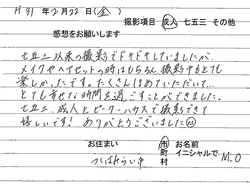 H31年2月22日(金)
撮影項目 成人 七五三 その他
感想をお願いします
七五三以来の撮影でドキドキしていましたが、
メイクやヘアセットの時はもちろん撮影中もとても
楽しかったです。たくさんほめていただいて…
とても幸せな時間を過ごすことができました。
七五三、成人とピーターハウスで撮影できて
嬉しいです!ありがとうございました
お住まい 市 町 村 お名前
つくばみらい市 イニシャルで M.O